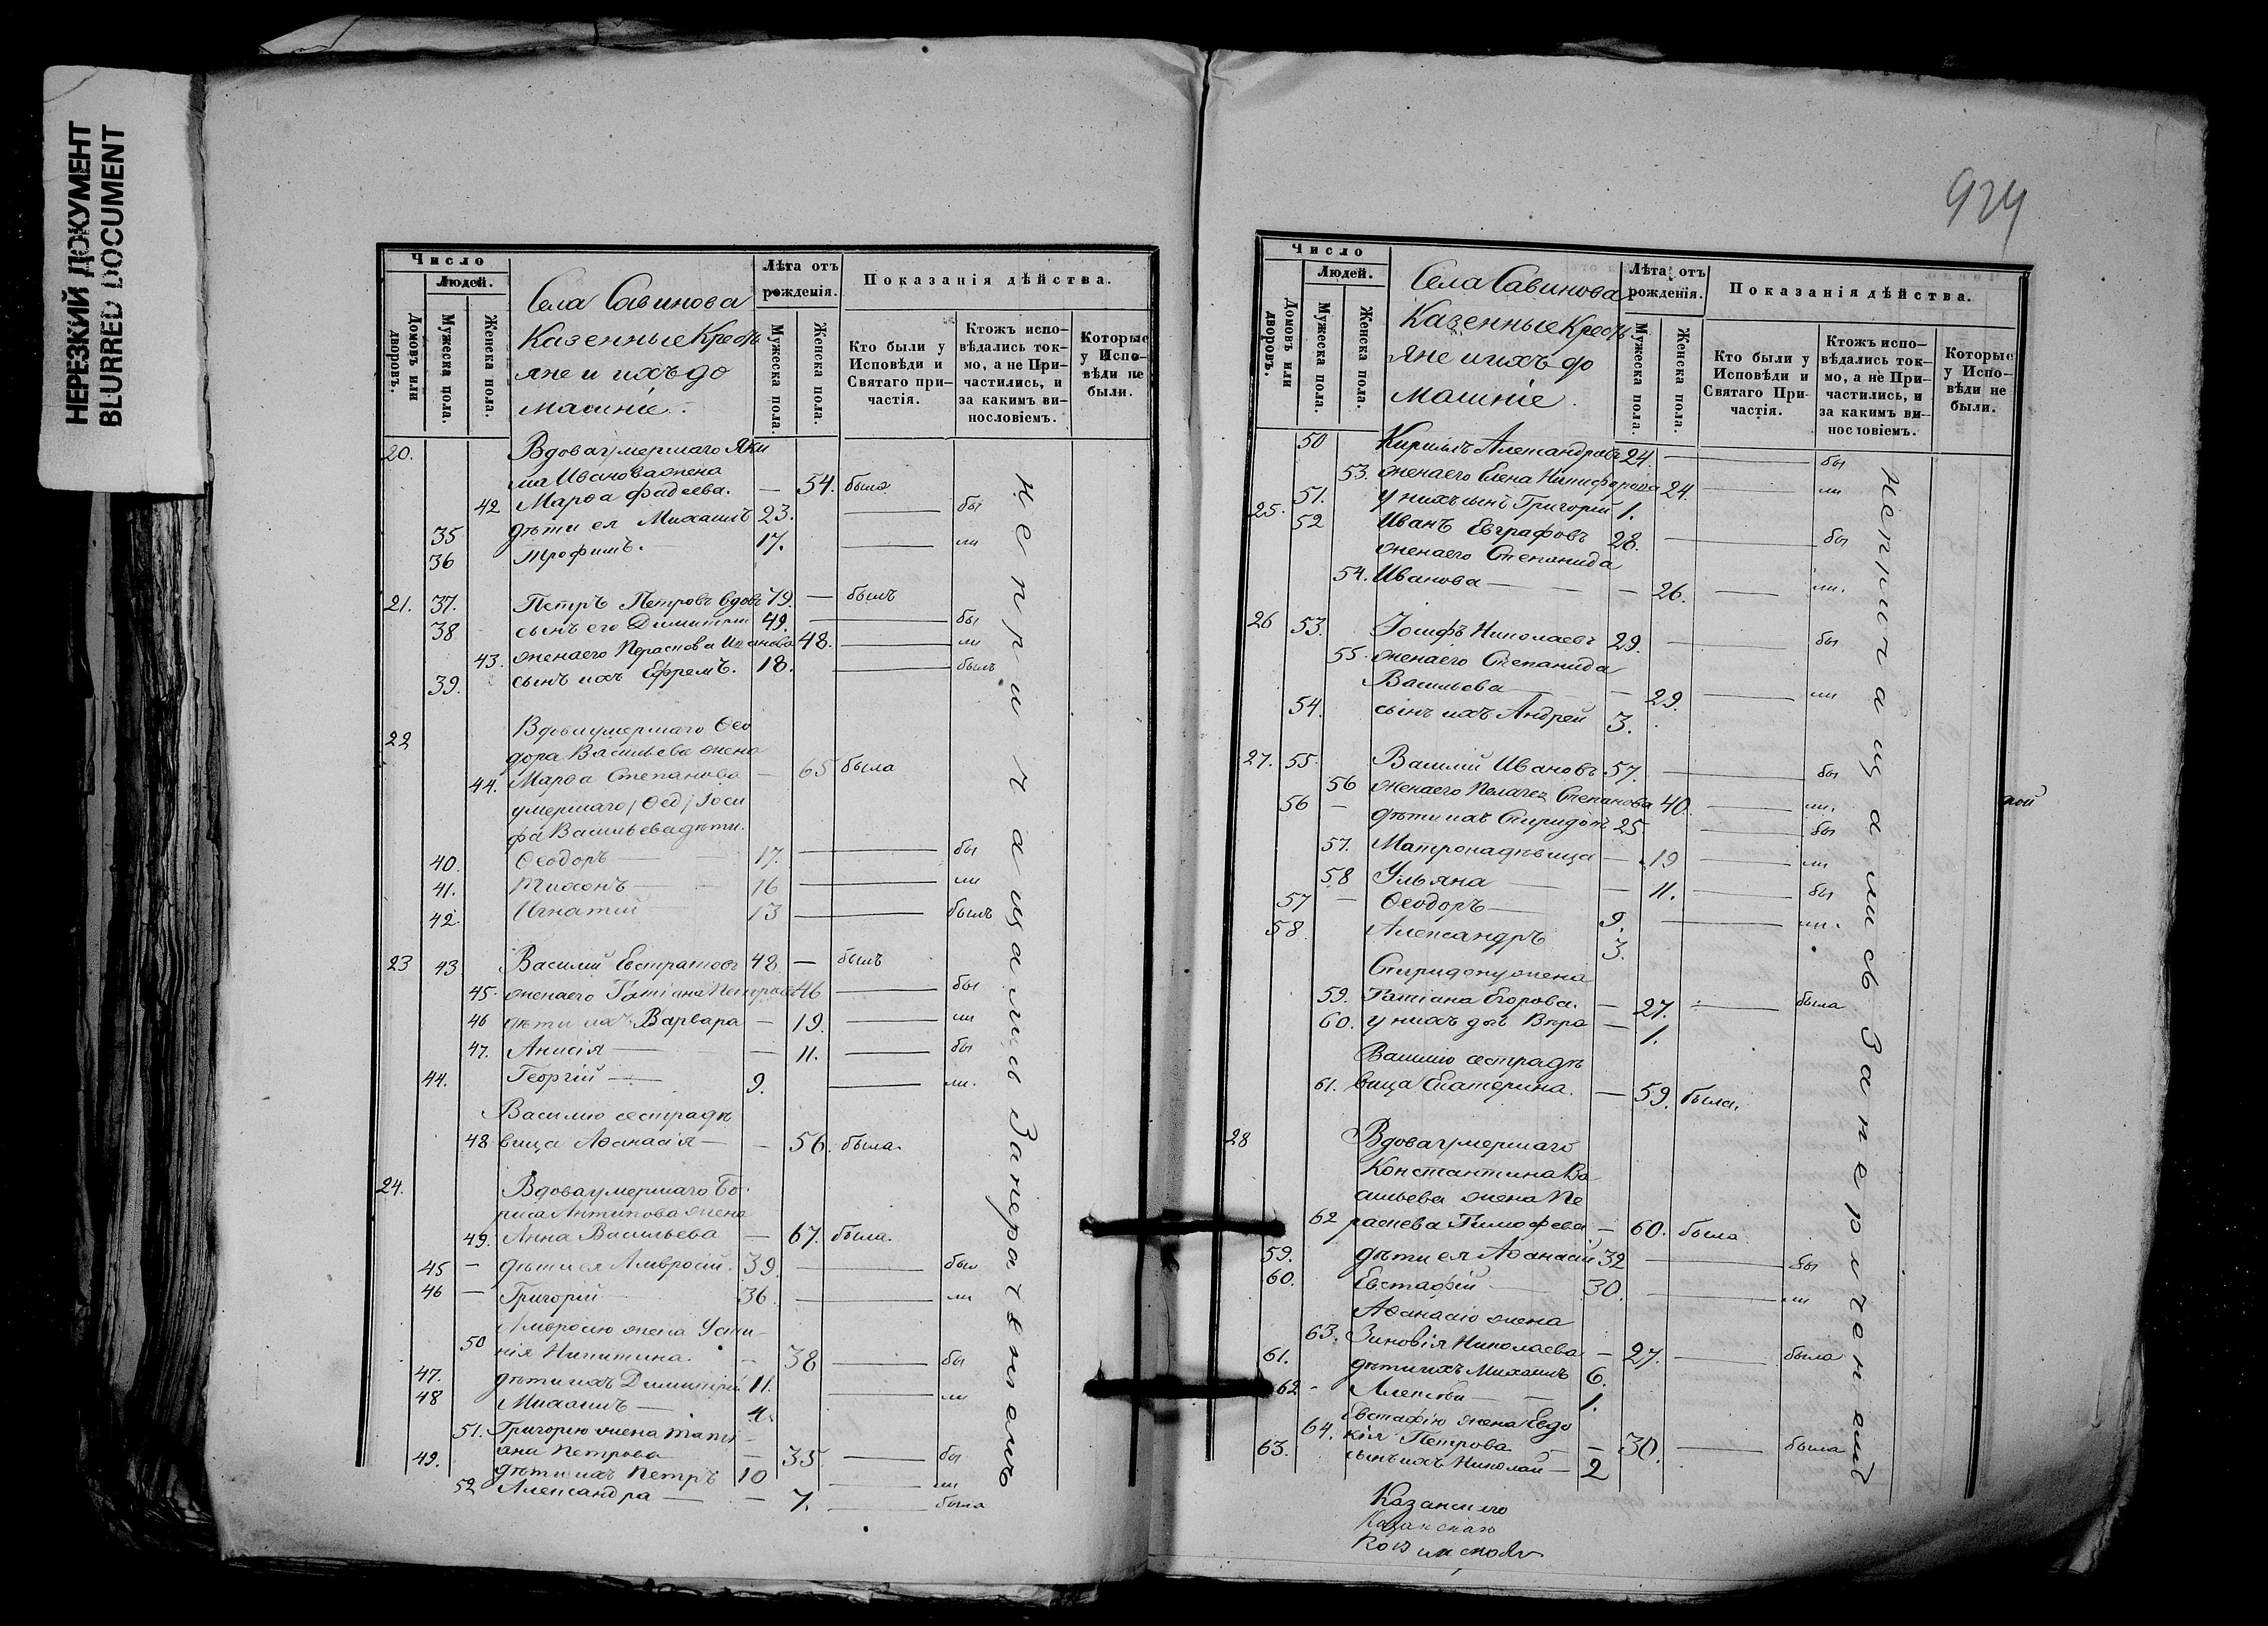 НЕРЕЗКИЙ ДОКУМЕНТ
BLURRED DOCUMENT
Число
Людей.
Домовъ или дворовъ.
Мужеска пола.
Женска пола.
Села Савинова
Казенные Кресть
яне и ихъ до
машніе.
Лѣта отъ
рожденія.
Мужеска пола.
Женска пола.
Показанія дѣйства.
Кто были у
Исповѣди и
Святаго при-
частія.
Ктожъ испо-
вѣдались ток-
мо, а не При-
частились, и
за какимъ ви-
нословіемъ.
Которые
у Испо-
вѣди не
были.
20. Вдова умершаго Яки
ма Иванова жена
42 Марѳа Фадеева. — 54. была
35 дѣти ея Михаилъ 23. — бы
36 Трофимъ. — 17. — ли
21. 37. Петръ Петровъ вдовъ 79. — былъ
38 сынъ его Димитрій 49. — бы
43. жена его Параскова Иванова 48. — ли
39. сынъ ихъ Ефремъ. 18. — былъ
22 Вдова умершаго Ѳео
дора Васильева жена
44. Марѳа Степанова — 65 была
умершаго Іоси
фа Васильева дѣти.
40. Ѳеодоръ — 17. — бы
41. Тихонъ — 16 — ли
42. Игнатій — 13 — былъ
23 43. Василій Евстратовъ 48 — былъ
45. жена его Татіана Петрова 46 — бы
46 дѣти ихъ Варвара — 19. — ли
47. Анисія — — 11. — бы
44. Георгій — 9. — ли.
Василію сестра дѣ
48 вица Аѳанасія — — 56. была.
24. Вдова умершаго Бо
риса Антипова жена
49. Анна Васильева — 67. была.
45 — дѣти ея Амвросій. 39. — бы
46 — Григорій 36. — ли
Амвросію жена Усти-
50 нія Никитина. — 38 — бы
47. дѣти ихъ Димитрій 11.
48 Михаилъ — 4. — ли
51. Григорію жена Тати-
ана Петрова — 35. — бы
49. дѣти ихъ Петръ 10 — ли
52 Александра — — 7. — была
не причащались За невозможностью
924
Число
Людей.
Домовъ или дворовъ.
Мужеска пола.
Женска пола.
Села Савинова
Казенные Кресть
яне и ихъ до
машніе.
Лѣта отъ
рожденія.
Мужеска пола.
Женска пола.
Показанія дѣйства.
Кто были у
Исповѣди и
Святаго При-
частія.
Ктожъ испо-
вѣдались ток-
мо, а не При-
частились, и
за какимъ ви-
нословіемъ.
Которые
у Испо-
вѣди не
были.
50 Кирилъ Александровъ 24. — бы
53. жена его Елена Никифорова 24. — ли
51. у нихъ сынъ Григорій 1.
25. 52 Иванъ Евграфовъ 28. — бы
жена его Степанида
54. Иванова — — 26. — ли.
26 53. Іосифъ Николаевъ 29. — бы
55. жена его Степанида
Васильева — — 29. — ли
54. сынъ ихъ Андрей 3.
27. 55. Василій Ивановъ 57. — бы
56 жена его Пелагея Степанова 40. — ли.
56 — дѣти ихъ Спиридонъ 25 — бы
57. Матрона дѣвица — 19 — ли
58 Ульяна — — 11. — бы
57 — Ѳеодоръ — 9. — ли.
58. Александръ 3.
Спиридону жена
59. Татіана Егорова. — 27. — была
60. у нихъ дочь Вѣра — 1.
Василію сестра дѣ
61. вица Екатерина. — 59. была.
28 Вдова умершаго
Константина Ва
сильева жена Па
62 раскева Тимофеева — 60. была
59. дѣти ея Аѳанасій 32 — бы
60. Евстафій — 30. — ли
Аѳанасію жена
63. Зиновія Николаева — 27. — была
61. дѣти ихъ Михаилъ 6.
62 - Алексѣй — 1.
Евстафію жена Евдо
64. кія Петрова — — 30. — была
63. сынъ ихъ Николай — 2
не причащались
Казанскаго